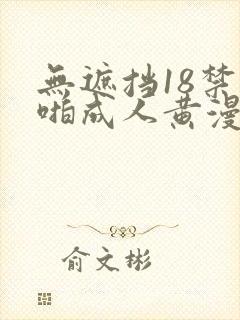 無遮挡18禁
啪成人黄漫
俞文彬